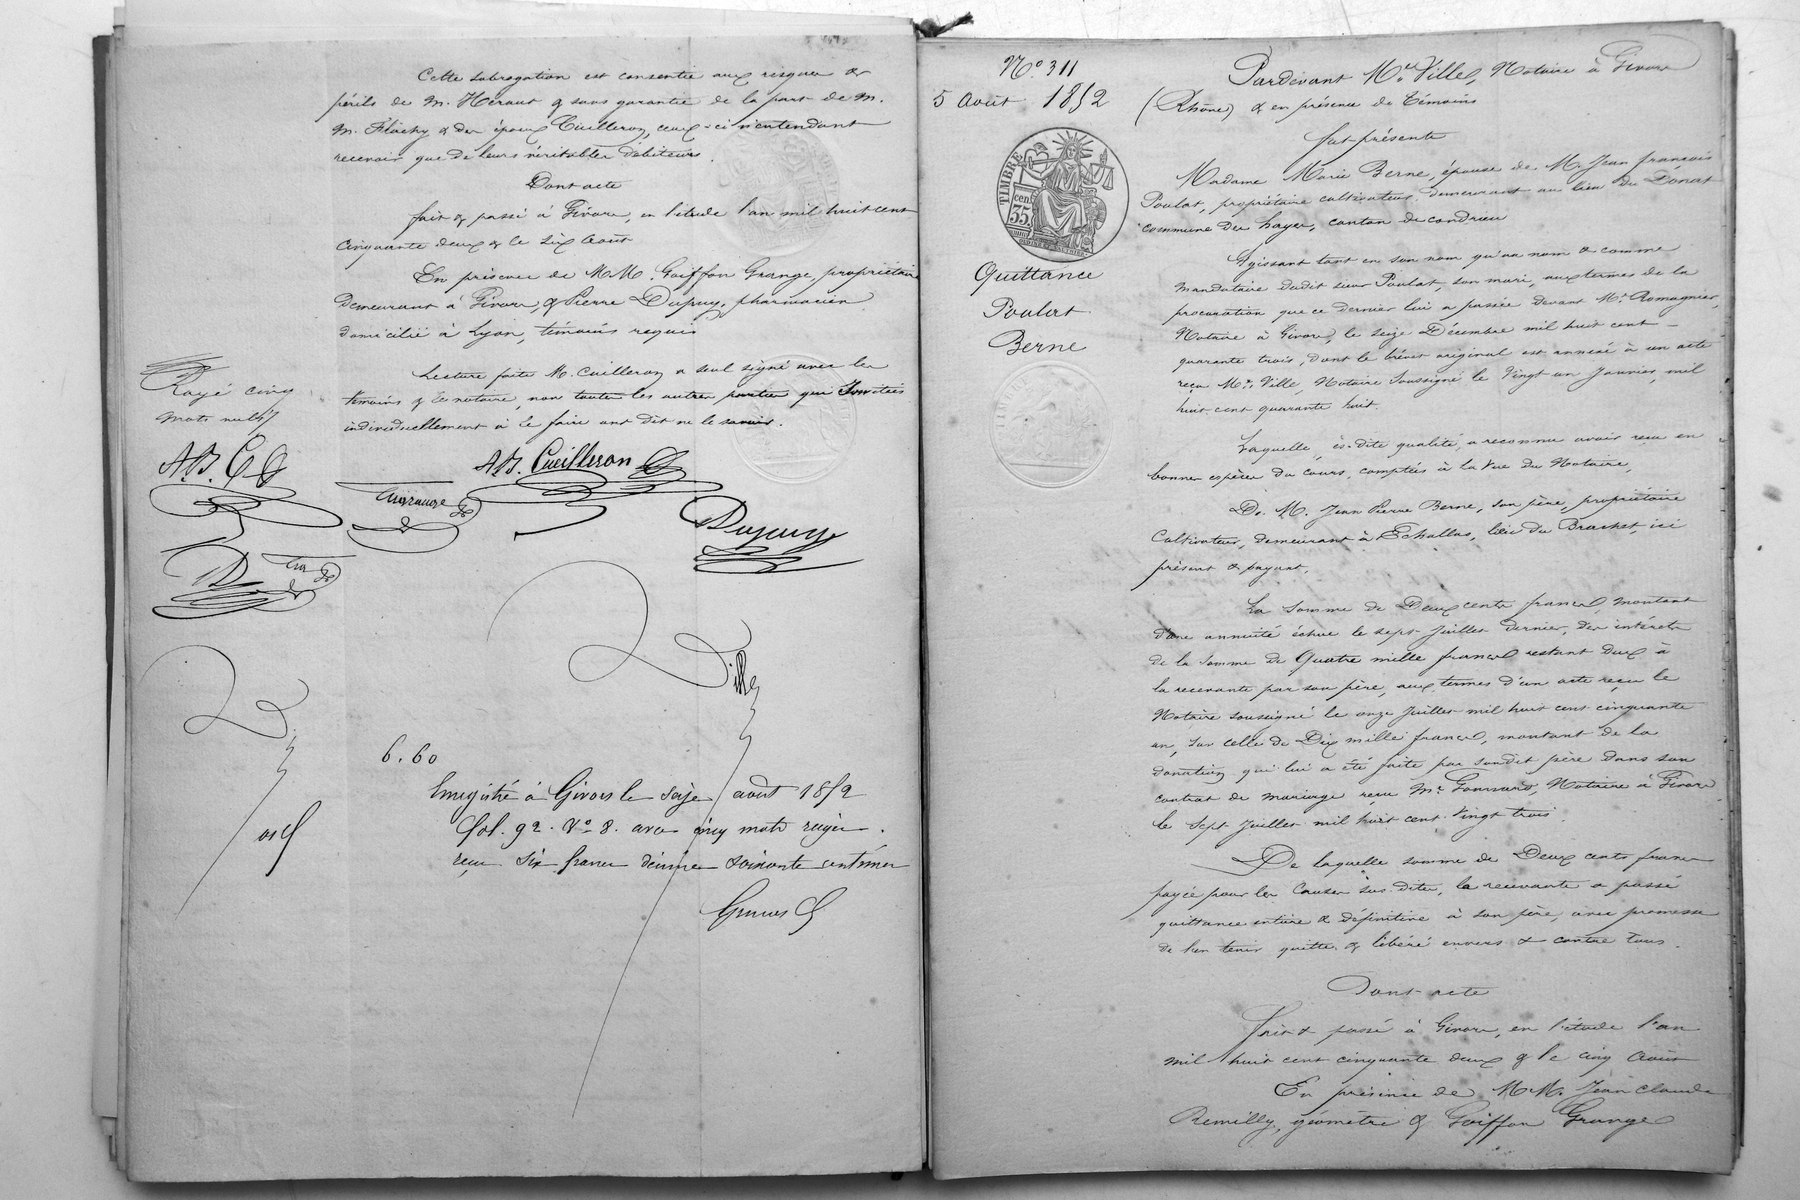 Cette subrogation est consentie aux risques &
périls de M. Heraut & sans garantie de la part de M.
M. Flachy & des époux Cuilleron, ceux-ci n'entendant
recevoir que de leurs véritables débiteurs.
Dont acte
fait & passé à Givors, en l'étude l'an mil huit cent
cinquante deux & le six août
En présence de MM. Goiffon Grange, propriétaire
demeurant à Givors, & Pierre Dupuy, pharmacien
domicilié à Lyon, témoins requis
Lecture faite M. Cuilleron a seul signé avec les
témoins & le notaire, non toutes les autres parties qui invitées
individuellement à le faire ont dit ne le savoir.
Rayé cinq
mots nuls
A.B. C
A.B. Cueilleron
Dupuy
Ville
6.60
Enregistré à Givors le seize août 1852
fol. 92. Vo 8. avec cinq mots rayés.
reçu six francs décime soixante centimes
No 311
5 Août 1852
TIMBRE
35 cen
Quittance
Poulat
Berne
Pardevant Me Ville, Notaire à Givors
(Rhône) & en présence de témoins
fut présente
Madame Marie Berne, épouse de M. Jean françois
Poulat, propriétaire cultivateur, demeurant au lieu du
commune des hayes, canton de condrieu
Agissant tant en son nom qu'au nom & comme
mandataire dudit sieur Poulat, son mari, aux termes de la
procuration que ce dernier lui a passée devant Me Romagnier,
Notaire à Givors, le seize Décembre mil huit cent
quarante trois, dont le brévet original est annexé à un acte
reçu Me Ville, Notaire soussigné le vingt un Janvier, mil
huit cent quarante huit.
Laquelle, ès-dite qualité, a reconnu avoir reçu en
bonnes espèces du cours, comptées à la vue du Notaire,
De M. Jean Pierre Berne, son père, propriétaire
Cultivateur, demeurant à Echallas, lieu du Brachet, ici
présent & payant,
La somme de Deux cents francs, montant
d'une annuité échue le sept Juillet dernier, des intérêts
de la somme de Quatre mille francs restant dus à
la recevante par son père, aux termes d'un acte reçu le
Notaire soussigné le onze Juillet mil huit cent cinquante
un, sur celle de Dix mille francs, montant de la
donation qui lui a été faite par sondit père dans son
contrat de mariage reçu Me Gonnard, Notaire à Givors,
le sept Juillet mil huit cent vingt trois.
De laquelle somme de Deux cents francs
payée pour les causes sus dites, la recevante a passé
quittance entière & définitive à son père, avec promesse
de l'en tenir quitte & libéré envers & contre tous.
Dont acte
Fait & passé à Givors, en l'étude l'an
mil huit cent cinquante deux & le cinq Août
En présence de MM. Jean Claude
Remilly, géomètre & Goiffon Grange